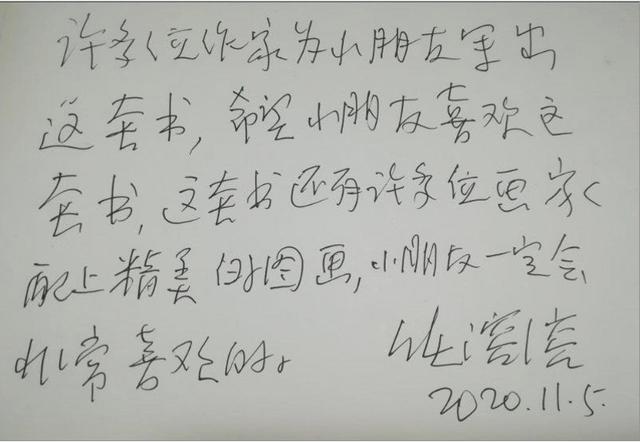 许多位作家为小朋友写出
这套书，希望小朋友喜欢这
套书，这套书还有许多位画家
配上精美的图画，小朋友一定会
非常喜欢的。
2020.11.5.